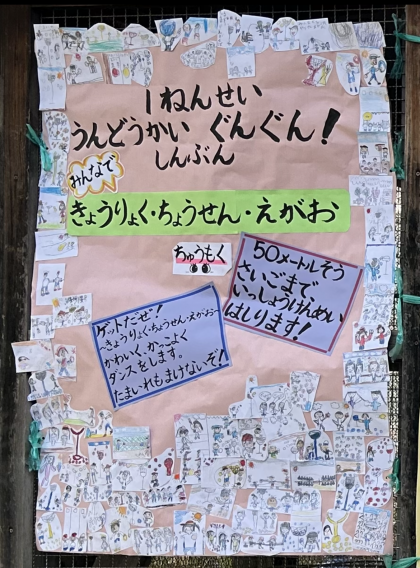 1ねんせい
うんどうかい ぐんぐん！
しんぶん
みんなで
きょうりょく・ちょうせん・えがお
ちゅうもく
50メートルそう
さいごまで
いっしょうけんめい
はしります！
ゲットだぜ！
きょうりょくちょうせん・えがおー
かわいく、かっこよく
ダンスをします。
たまいれもまけないぞ！